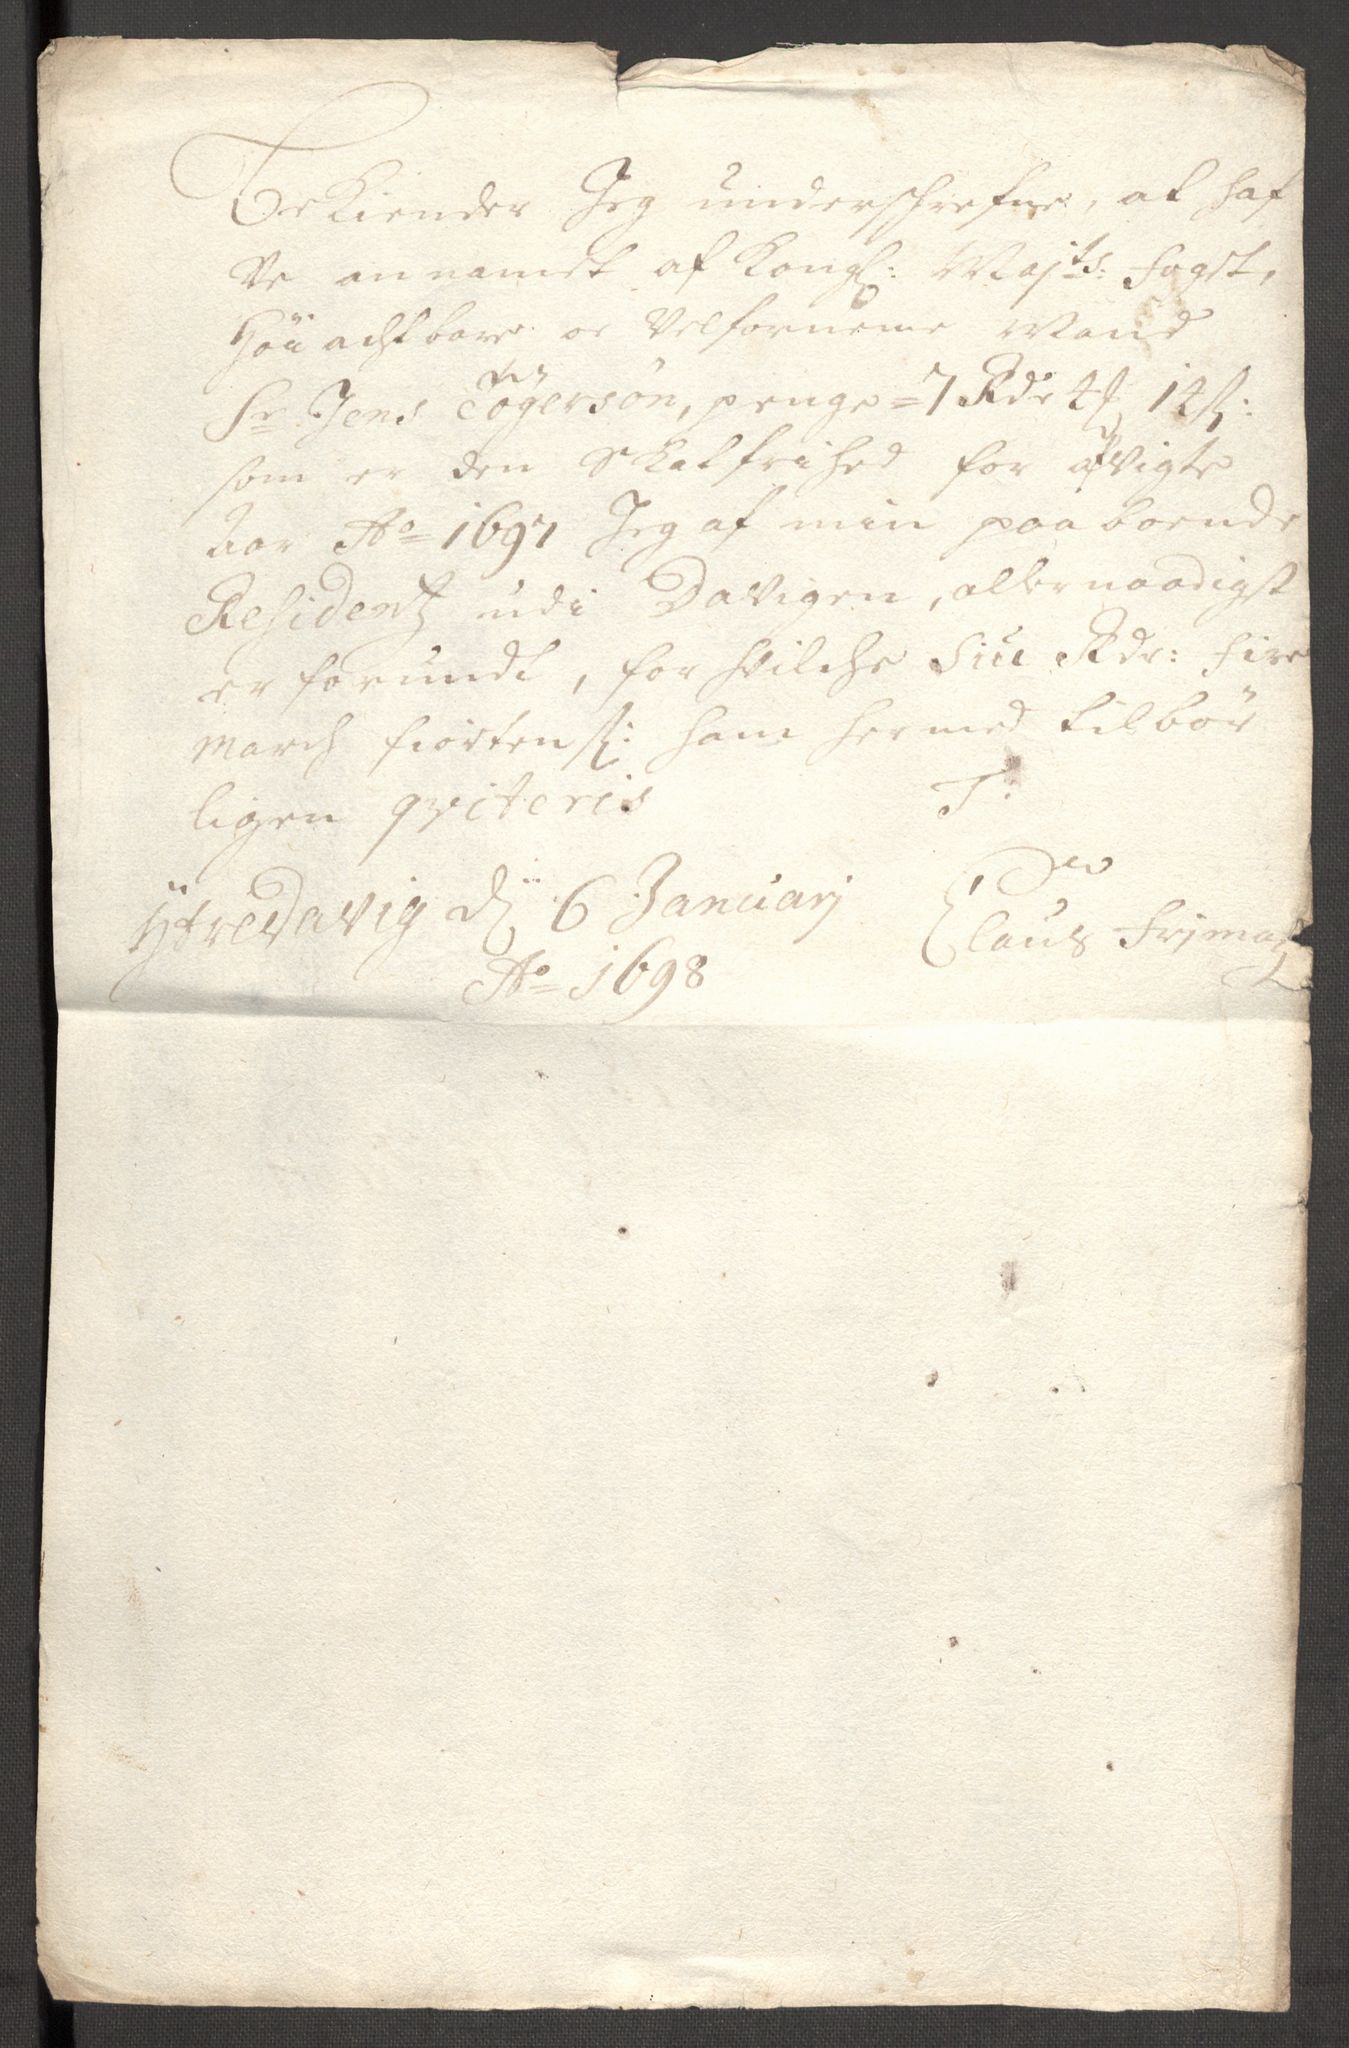 Bekiender Jeg underschrefne, at haf
ve annamet af Kongl: Maÿts: fogt,
Höÿ achtbare oc Velforneme Mand
Sr Jens Tögersön, penge = 7 Rdr 4 ₰ 14 s:
som er den Skatfrihed for afvigte
Aar Ao 1697 Jeg af min paaboende
Residentz udi Davigen, allernaadigst
er forundt, for hvilche Siu Rdr: fire
march fiorten s: hand hermed tilbör
ligen qviteris T:
Ÿtredavig dÿ 6 Januarj
Ao 1698
Claus Frjma